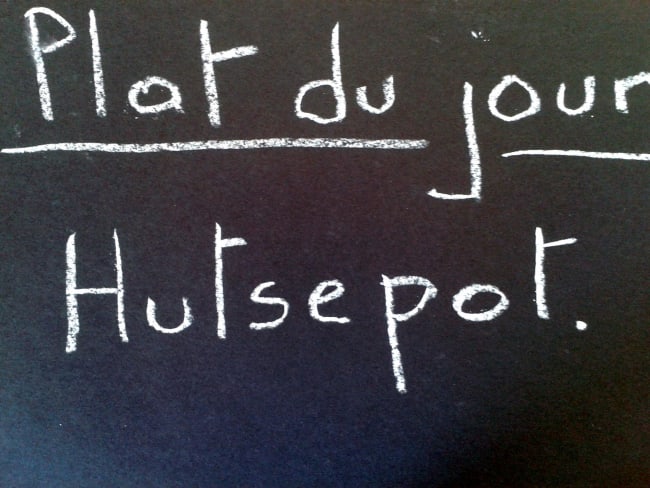 Plat du jour
Hutsepot.